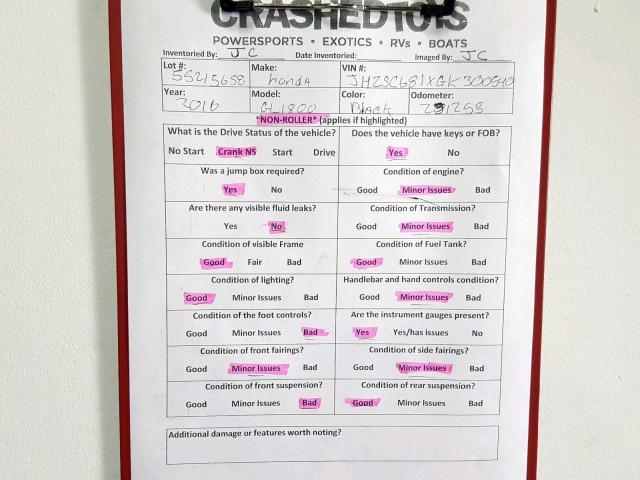 CRASHEDTOYS
POWERSPORTS • EXOTICS • RVs • BOATS
Inventoried By: JC Date Inventoried: Imaged By: JC
Lot #: Make: VIN #:
55215658 HONDA
Year: Model: Color: Odometer:
2016 GL1800 Black
*NON-ROLLER* (applies if highlighted)
What is the Drive Status of the vehicle? Does the vehicle have keys or FOB?
No Start Crank NS Start Drive Yes No
Was a jump box required? Condition of engine?
Yes No Good Minor Issues Bad
Are there any visible fluid leaks? Condition of Transmission?
Yes No Good Minor Issues Bad
Condition of visible Frame Condition of Fuel Tank?
Good Fair Bad Good Minor Issues Bad
Condition of lighting? Handlebar and hand controls condition?
Good Minor Issues Bad Good Minor Issues Bad
Condition of the foot controls? Are the instrument gauges present?
Good Minor Issues Bad Yes Yes/has issues No
Condition of front fairings? Condition of side fairings?
Good Minor Issues Bad Good Minor Issues Bad
Condition of front suspension? Condition of rear suspension?
Good Minor Issues Bad Good Minor Issues Bad
Additional damage or features worth noting?